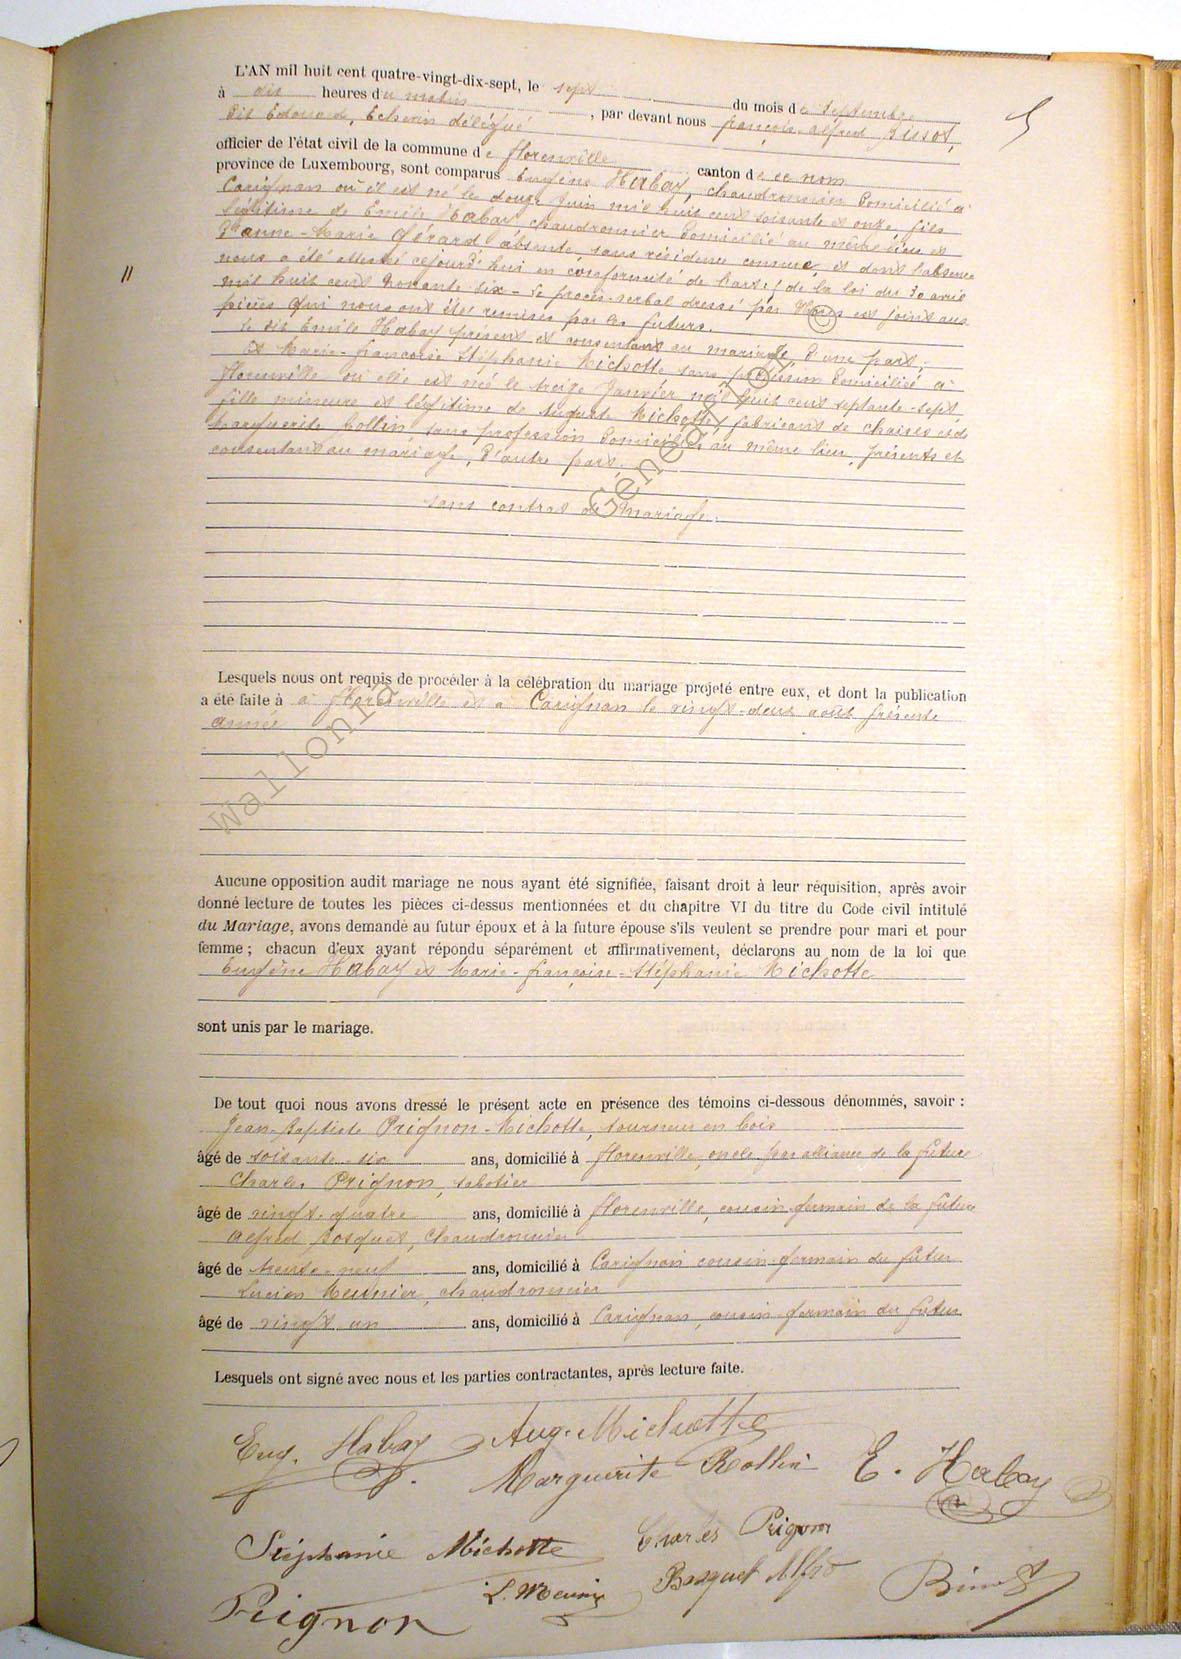 L'AN mil huit cent quatre-vingt-dix-sept, le sept du mois de Septembre
à dix heures du matin, par devant nous françois-alfred
dit Edouard, Echevin délégué
officier de l'état civil de la commune de florenville canton de ce nom
province de Luxembourg, sont comparus Eugène Habay, chaudronnier domicilié à
Carignan où il est né le douze Juin mil huit cent soixante et onze, fils
légitime de Emile Habay, chaudronnier domicilié au même lieu et
D'anne-Marie Gérard absente, sans résidence connue, et dont l'absence
nous a été attesté cejourd'hui en conformité de l'art. de la loi du 30 avril
mil huit cent nonante-six - le procès-verbal dressé par Nous est joint aux
pièces qui nous ont été remises par les futurs.
Le dit Emile Habay présent et consentant au mariage d'une part;
Et Marie-françoise Stéphanie Michotte sans profession domiciliée à
florenville où elle est née le treize Janvier mil huit cent septante-sept,
fille mineure et légitime de Auguste Michotte, fabricant de chaises et de
Marguerite Collin, sans profession domiciliés au même lieu, présents et
consentant au mariage, d'autre part.
sans contrat de mariage.
Lesquels nous ont requis de procéder à la célébration du mariage projeté entre eux, et dont la publication
a été faite à à florenville et à Carignan le vingt-deux août présente
année
Aucune opposition audit mariage ne nous ayant été signifiée, faisant droit à leur réquisition, après avoir
donné lecture de toutes les pièces ci-dessus mentionnées et du chapitre VI du titre du Code civil intitulé
du Mariage, avons demandé au futur époux et à la future épouse s'ils veulent se prendre pour mari et pour
femme ; chacun d'eux ayant répondu séparément et affirmativement, déclarons au nom de la loi que
Eugène Habay et Marie-françoise-Stéphanie Michotte
sont unis par le mariage.
De tout quoi nous avons dressé le présent acte en présence des témoins ci-dessous dénommés, savoir :
Jean-Baptiste Prignon-Michotte, tourneur en bois
âgé de soixante-six ans, domicilié à florenville, oncle par alliance de la future
Charles Prignon, sabotier
âgé de vingt-quatre ans, domicilié à florenville, cousin germain de la future
alfred Bosquet, Chaudronnier
âgé de trente-neuf ans, domicilié à Carignan cousin-germain du futur
Lucien Meunier, chaudronnier
âgé de vingt un ans, domicilié à Carignan, cousin-germain du futur
Lesquels ont signé avec nous et les parties contractantes, après lecture faite.
Eug. Habay Aug. Michotte
Marguerite Collin E. Habay
Stéphanie Michotte Charles Prignon
L. Meunier Bosquet Alfred
Prignon
wallonie Généalogie ©